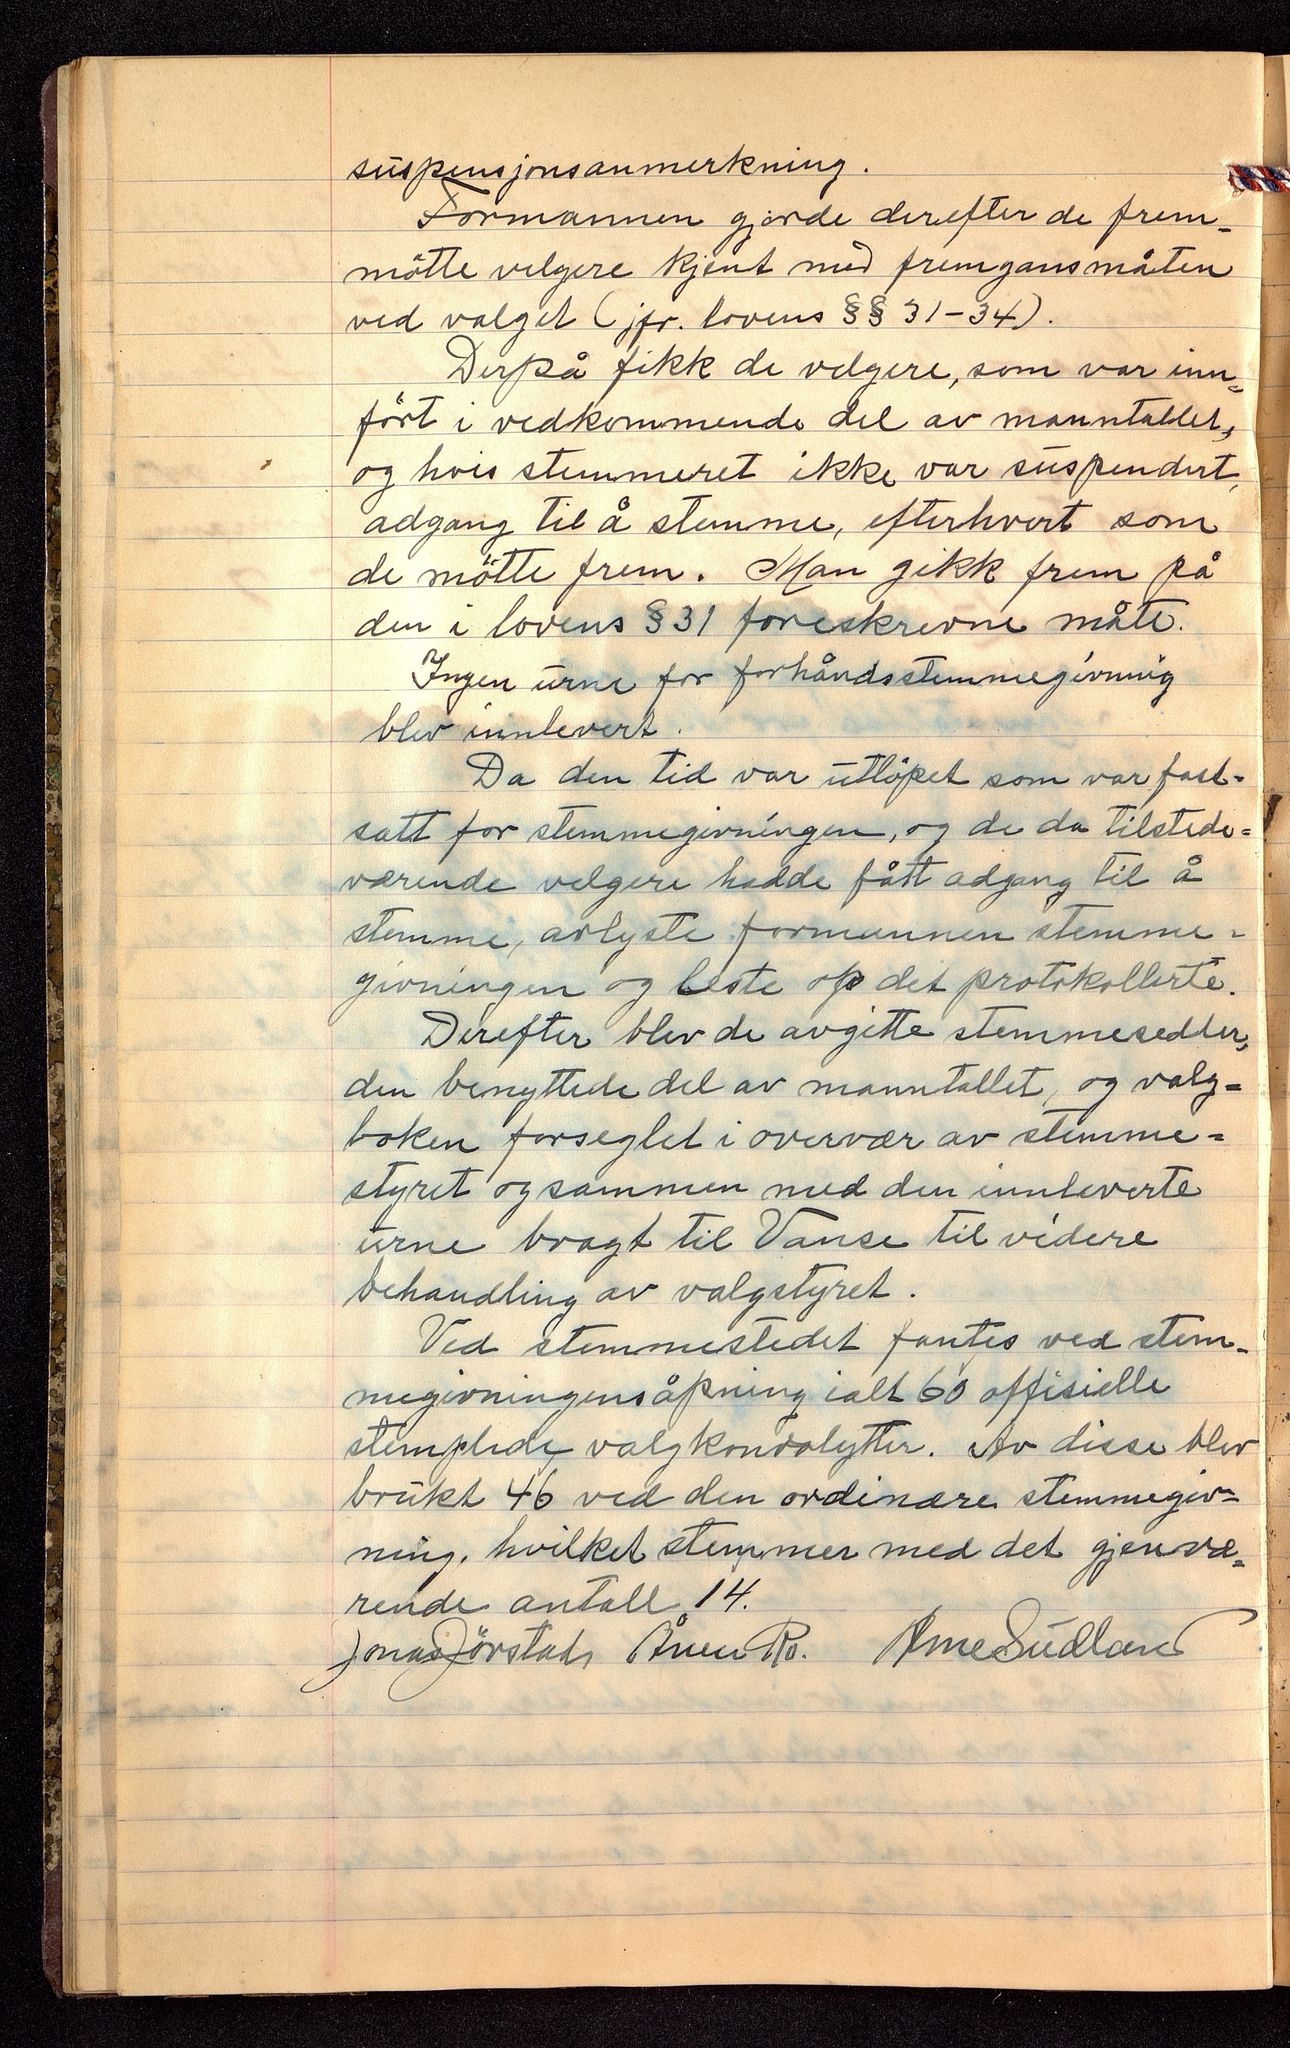 suspensjonsanmerkning.
Formannen gjorde derefter de frem-
møtte velgere kjent med fremgansmåten
ved valget (jfr. lovens §§ 31-34).
Derpå fikk de velgere, som var inn-
ført i vedkommende del av manntallet,
og hvis stemmeret ikke var suspendert,
adgang til å stemme, efterhvert som
de møtte frem. Man gikk frem på
den i lovens § 31 foreskrevne måte.
Ingen urne for forhåndsstemmegivning
blev innlevert.
Da den tid var utløpet som var fast-
satt for stemmegivningen, og de da tilstede-
værende velgere hadde fått adgang til å
stemme, avlyste formannen stemme-
givningen og leste op det protokollerte.
Derefter blev de avgitte stemmesedler,
den benyttede del av manntallet, og valg-
boken forseglet i overvær av stemme-
styret og sammen med den innleverte
urne bragt til Vanse til videre
behandling av valgstyret.
Ved stemmestedet fantes ved stem-
megivningens åpning ialt 60 offisielle
stemplede valgkonvolytter. Av disse blev
brukt 46 ved den ordinære stemmegiv-
ning. hvilket stemmer med det gjenvæ-
rende antall 14.
Jonas Jørstad Ånen Ro. Arne Sudland